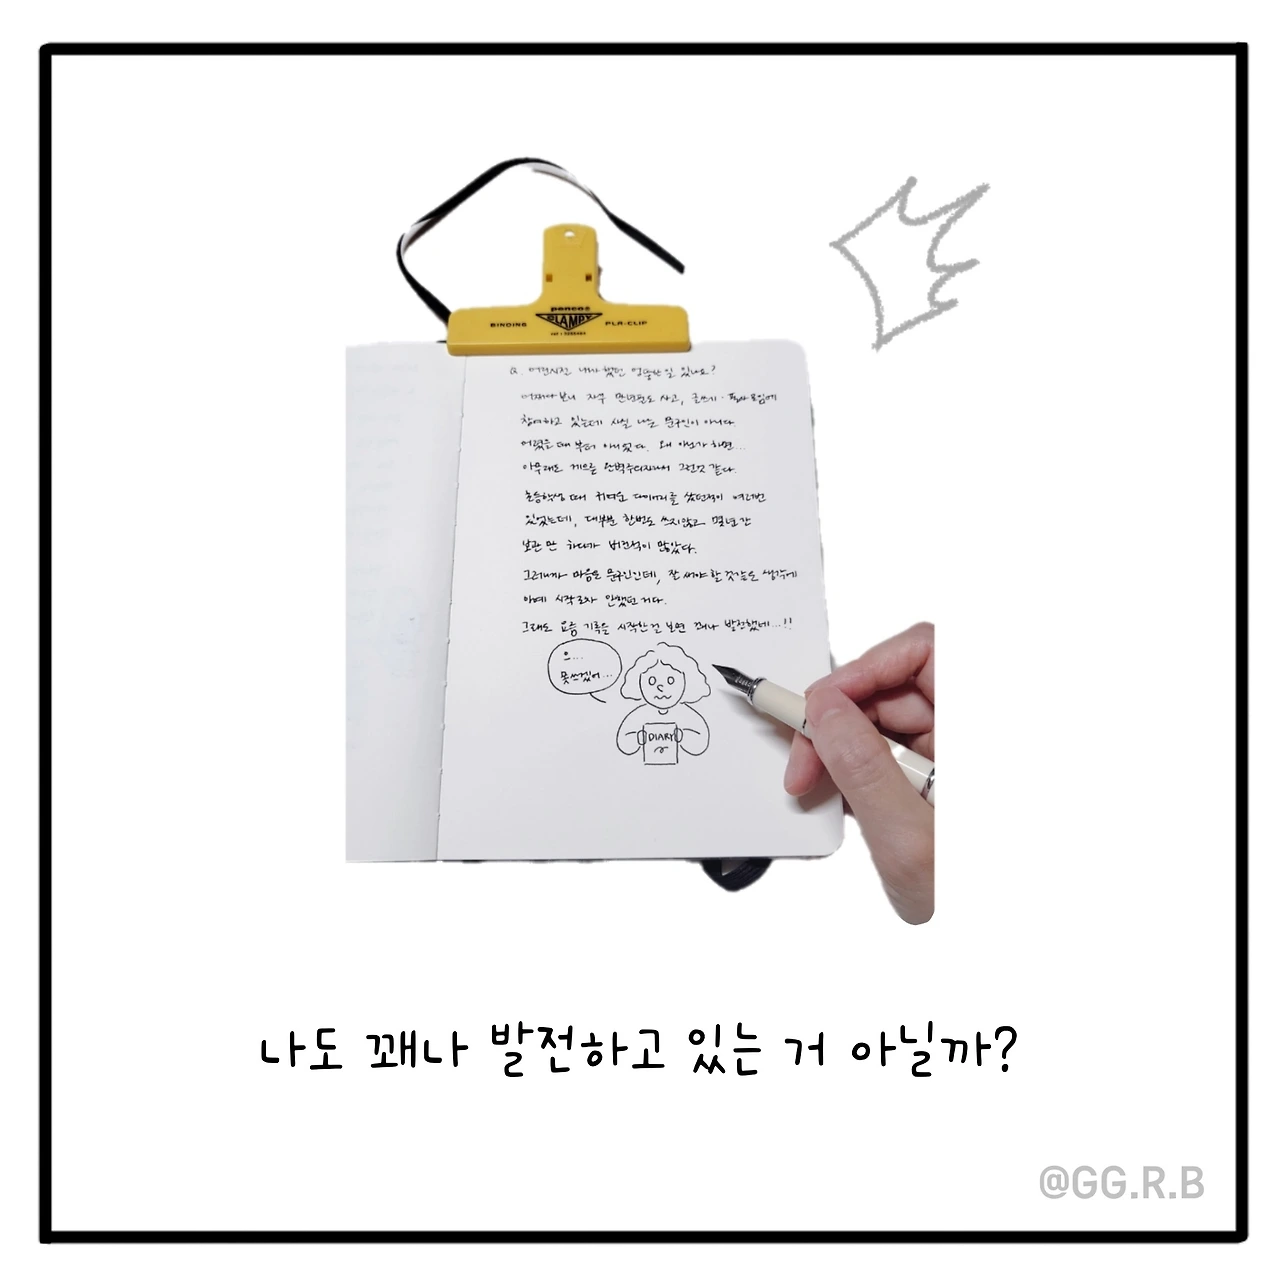 penco®
BINDING CLAMPY PLA-CLIP
Q. 어린시절 나나 했던 엉뚱한 일 있나요?
어쩌다보니 자꾸 만년필도 사고, 글쓰기·필사모임에
참여하고 있는데 사실 나는 문구인이 아니다.
어렸을때부터 아니었다. 왜 아닌가 하면...
아무래도 게으른 완벽주의자라서 그런것 같다.
초등학생 때 귀여운 다이어리를 샀던적이 여러번
있었는데, 대부분 한번도 쓰지않고 몇년간
보관만 하다가 버린적이 많았다.
그러니까 마음은 문구인인데, 잘 써야 할 것같은 생각에
아예 시작조차 안했던 거다.
그래도 요즘 기록을 시작한걸 보면 꽤나 발전했네...!!
으...
못쓰겠어...
DIARY
나도 꽤나 발전하고 있는 거 아닐까?
@GG.R.B